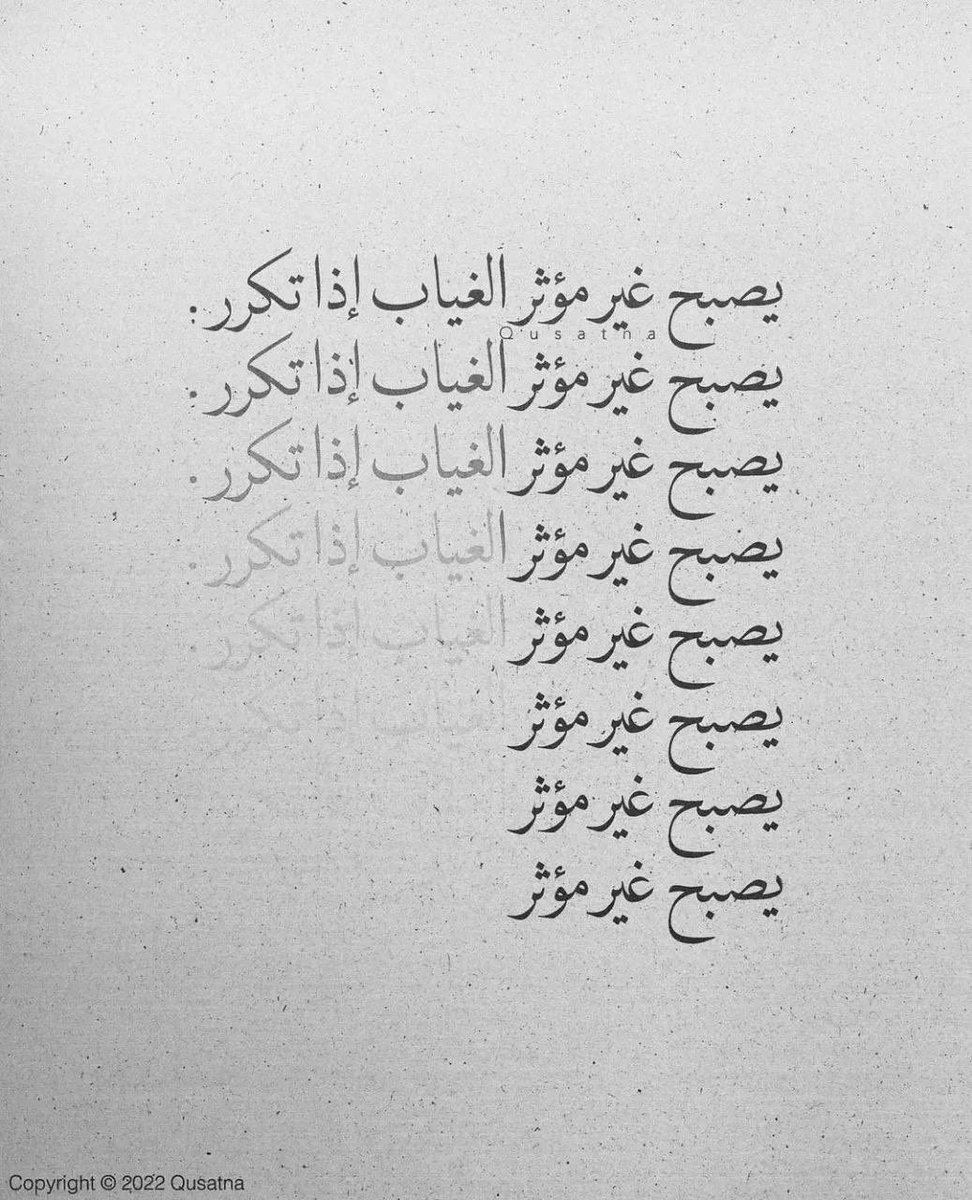 يصبح غير مؤثر الغياب إذا تكرر .
Qusatna
يصبح غير مؤثر الغياب إذا تكرر .
يصبح غير مؤثر الغياب إذا تكرر .
يصبح غير مؤثر الغياب إذا تكرر .
يصبح غير مؤثر الغياب إذا تكرر .
يصبح غير مؤثر الغياب إذا تكرر
يصبح غير مؤثر
يصبح غير مؤثر
Copyright © 2022 Qusatna